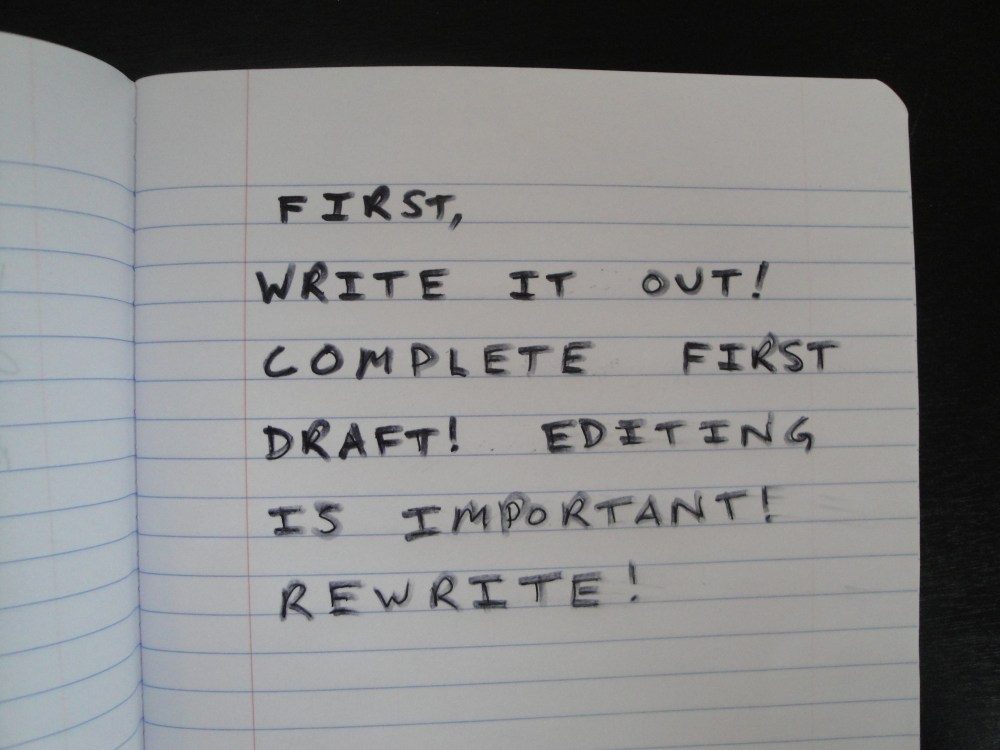 FIRST,
WRITE IT OUT!
COMPLETE FIRST
DRAFT! EDITING
IS IMPORTANT!
REWRITE!